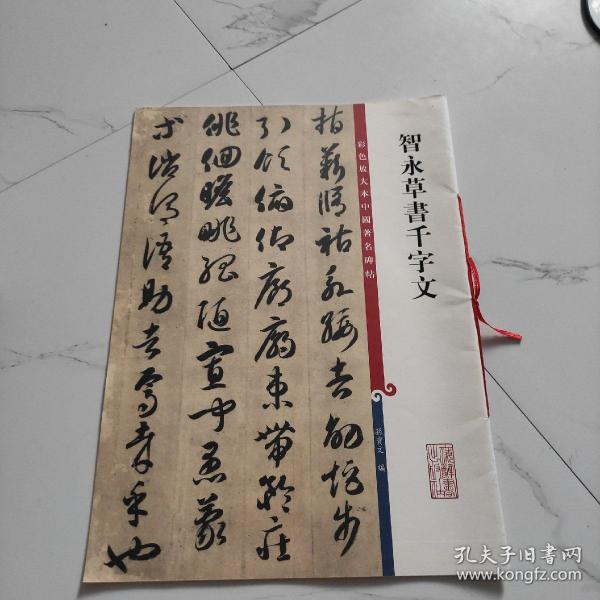 智永草書千字文
彩色放大本中國著名碑帖
孫寶文 編
指薪脩祜永綏吉劭矩步
引領俯仰廊廟束帶矜莊
徘徊瞻眺孤陋寡聞愚蒙
等誚謂語助者焉哉乎也
孔夫子旧书网
www.kongfz.com